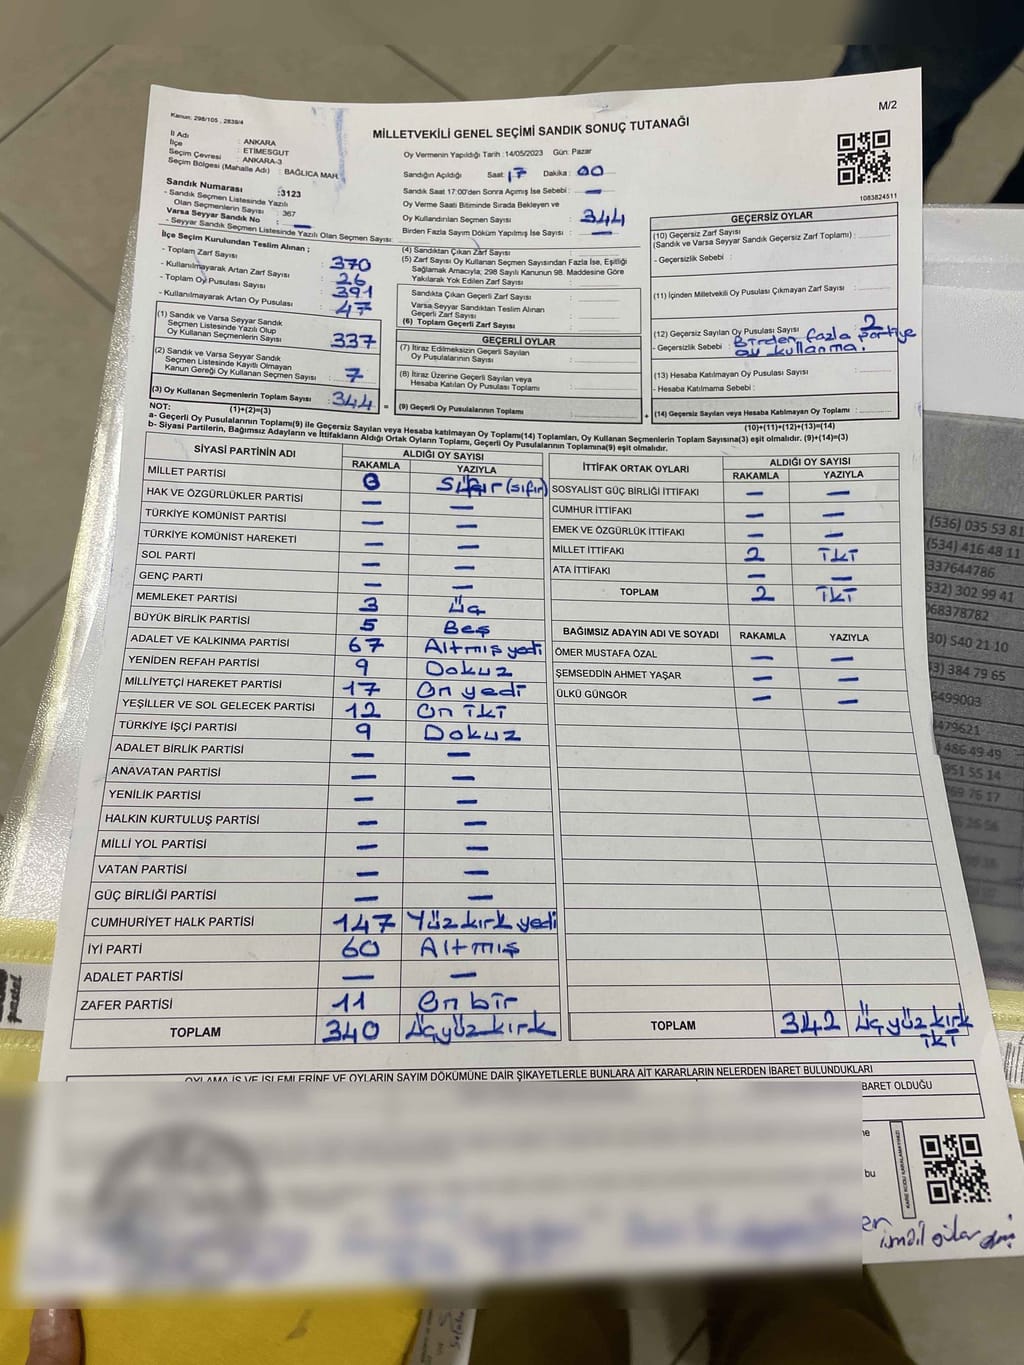 Kanun: 298/105 , 2839/4
M/2
MİLLETVEKİLİ GENEL SEÇİMİ SANDIK SONUÇ TUTANAĞI
İl Adı : ANKARA
İlçe : ETİMESGUT
Seçim Çevresi : ANKARA-3
Seçim Bölgesi (Mahalle Adı) : BAĞLICA MAH.
Sandık Numarası :3123
- Sandık Seçmen Listesinde Yazılı
Olan Seçmenlerin Sayısı : 367
Varsa Seyyar Sandık No : —
- Seyyar Sandık Seçmen Listesinde Yazılı Olan Seçmen Sayısı:
Oy Vermenin Yapıldığı Tarih :14/05/2023 Gün: Pazar
Sandığın Açıldığı Saat: 17 Dakika: 00
Sandık Saat 17:00'den Sonra Açımış İse Sebebi : —
Oy Verme Saati Bitiminde Sırada Bekleyen ve
Oy Kullandırılan Seçmen Sayısı : 344
Birden Fazla Sayım Döküm Yapılmış İse Sayısı : —
1083824511
İlçe Seçim Kurulundan Teslim Alınan ;
- Toplam Zarf Sayısı : 370
- Kullanılmayarak Artan Zarf Sayısı : 26
- Toplam Oy Pusulası Sayısı : 391
- Kullanılmayarak Artan Oy Pusulası : 47
(1) Sandık ve Varsa Seyyar Sandık
Seçmen Listesinde Yazılı Olup
Oy Kullanan Seçmenlerin Sayısı : 337
(2) Sandık ve Varsa Seyyar Sandık
Seçmen Listesinde Kayıtlı Olmayan
Kanun Gereği Oy Kullanan Seçmen Sayısı : 7
(3) Oy Kullanan Seçmenlerin Toplam Sayısı : 344
(4) Sandıktan Çıkan Zarf Sayısı :
(5) Zarf Sayısı Oy Kullanan Seçmen Sayısından Fazla İse, Eşitliği
Sağlamak Amacıyla; 298 Sayılı Kanunun 98. Maddesine Göre
Yakılarak Yok Edilen Zarf Sayısı :
Sandıkta Çıkan Geçerli Zarf Sayısı :
Varsa Seyyar Sandıktan Teslim Alınan
Geçerli Zarf Sayısı :
(6) Toplam Geçerli Zarf Sayısı :
GEÇERLİ OYLAR
(7) İtiraz Edilmeksizin Geçerli Sayılan
Oy Pusulalarının Sayısı :
(8) İtiraz Üzerine Geçerli Sayılan veya
Hesaba Katılan Oy Pusulası Toplamı :
= (9) Geçerli Oy Pusulalarının Toplamı :
GEÇERSİZ OYLAR
(10) Geçersiz Zarf Sayısı
(Sandık ve Varsa Seyyar Sandık Geçersiz Zarf Toplamı) :
- Geçersizlik Sebebi :
(11) İçinden Milletvekili Oy Pusulası Çıkmayan Zarf Sayısı :
(12) Geçersiz Sayılan Oy Pusulası Sayısı : 2
- Geçersizlik Sebebi : Birden fazla partiye
oy kullanma.
(13) Hesaba Katılmayan Oy Pusulası Sayısı :
- Hesaba Katılmama Sebebi :
+ (14) Geçersiz Sayılan veya Hesaba Katılmayan Oy Toplamı :
NOT: (1)+(2)=(3) (10)+(11)+(12)+(13)=(14)
a- Geçerli Oy Pusulalarının Toplamı(9) ile Geçersiz Sayılan veya Hesaba Katılmayan Oy Toplamı(14) Toplamları, Oy Kullanan Seçmenlerin Toplam Sayısına(3) eşit olmalıdır. (9)+(14)=(3)
b- Siyasi Partilerin, Bağımsız Adayların ve İttifakların Aldığı Ortak Oyların Toplamı, Geçerli Oy Pusulalarının Toplamına(9) eşit olmalıdır.
SİYASİ PARTİNİN ADI ALDIĞI OY SAYISI
RAKAMLA YAZIYLA
MİLLET PARTİSİ 0 Sıfır (sıfır)
HAK VE ÖZGÜRLÜKLER PARTİSİ — —
TÜRKİYE KOMÜNİST PARTİSİ — —
TÜRKİYE KOMÜNİST HAREKETİ — —
SOL PARTİ — —
GENÇ PARTİ — —
MEMLEKET PARTİSİ 3 Üç
BÜYÜK BİRLİK PARTİSİ 5 Beş
ADALET VE KALKINMA PARTİSİ 67 Altmış yedi
YENİDEN REFAH PARTİSİ 9 Dokuz
MİLLİYETÇİ HAREKET PARTİSİ 17 On yedi
YEŞİLLER VE SOL GELECEK PARTİSİ 12 On iki
TÜRKİYE İŞÇİ PARTİSİ 9 Dokuz
ADALET BİRLİK PARTİSİ — —
ANAVATAN PARTİSİ — —
YENİLİK PARTİSİ — —
HALKIN KURTULUŞ PARTİSİ — —
MİLLİ YOL PARTİSİ — —
VATAN PARTİSİ — —
GÜÇ BİRLİĞİ PARTİSİ — —
CUMHURİYET HALK PARTİSİ 147 Yüz kırk yedi
İYİ PARTİ 60 Altmış
ADALET PARTİSİ — —
ZAFER PARTİSİ 11 On bir
TOPLAM 340 Üçyüz kırk
İTTİFAK ORTAK OYLARI ALDIĞI OY SAYISI
RAKAMLA YAZIYLA
SOSYALİST GÜÇ BİRLİĞİ İTTİFAKI — —
CUMHUR İTTİFAKI — —
EMEK VE ÖZGÜRLÜK İTTİFAKI — —
MİLLET İTTİFAKI 2 İki
ATA İTTİFAKI — —
TOPLAM 2 İki
BAĞIMSIZ ADAYIN ADI VE SOYADI RAKAMLA YAZIYLA
ÖMER MUSTAFA ÖZAL — —
ŞEMSEDDİN AHMET YAŞAR — —
ÜLKÜ GÜNGÖR — —
TOPLAM 342 Üçyüz kırk
iki
OYLAMA İŞ VE İŞLEMLERİNE VE OYLARIN SAYIM DÖKÜMÜNE DAİR ŞİKAYETLERLE BUNLARA AİT KARARLARIN NELERDEN İBARET BULUNDUKLARI
BARET OLDUĞU
bu
KARE KODU KARALAMAYINIZ!
(536) 035 53 81
(534) 416 48 11
337644786
532) 302 99 41
068378782
30) 540 21 10
3) 384 79 65
6499003
4479621
486 49 49
951 55 14
69 76 17